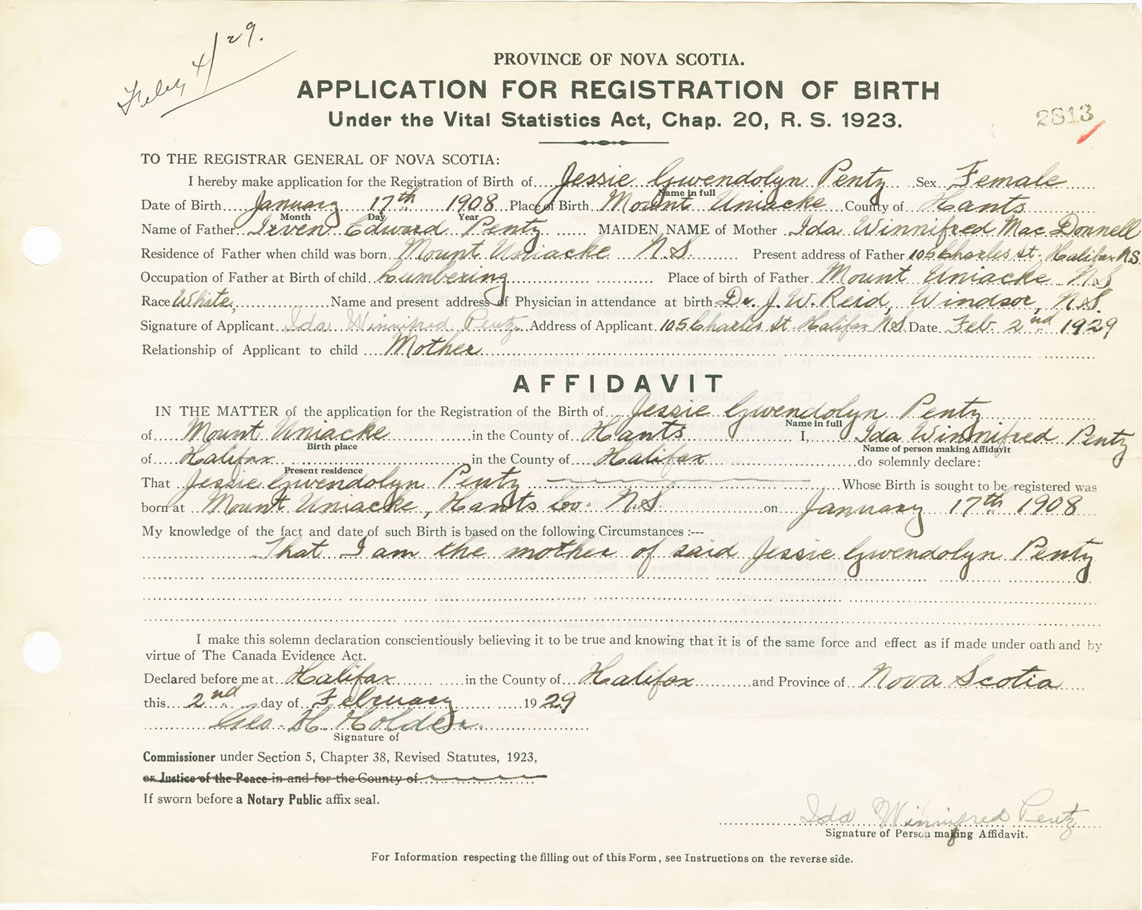 Feby 4/29.
PROVINCE OF NOVA SCOTIA.
APPLICATION FOR REGISTRATION OF BIRTH
Under the Vital Statistics Act, Chap. 20, R. S. 1923.
2813
TO THE REGISTRAR GENERAL OF NOVA SCOTIA:
I hereby make application for the Registration of Birth of Jessie Gwendolyn Pentz Sex Female
Name in full
Date of Birth January 17th 1908 Place of Birth Mount Uniacke County of Hants
Month Day Year
Name of Father Irven Edward Pentz MAIDEN NAME of Mother Ida Winnifred MacDonnell
Residence of Father when child was born Mount Uniacke N.S. Present address of Father 105 Charles St. Halifax N.S.
Occupation of Father at Birth of child Lumbering Place of birth of Father Mount Uniacke N.S
Race White, Name and present address of Physician in attendance at birth Dr. J. W. Reid, Windsor, N.S.
Signature of Applicant Ida Winnifred Pentz Address of Applicant 105 Charles St. Halifax N.S. Date Feb 2nd 1929
Relationship of Applicant to child Mother
AFFIDAVIT
IN THE MATTER of the application for the Registration of the Birth of Jessie Gwendolyn Pentz
Name in full
of Mount Uniacke in the County of Hants I, Ida Winnifred Pentz
Birth place Name of person making Affidavit
of Halifax in the County of Halifax do solemnly declare:
Present residence
That Jessie Gwendolyn Pentz Whose Birth is sought to be registered was
born at Mount Uniacke, Hants Co. N.S. on January 17th 1908
My knowledge of the fact and date of such Birth is based on the following Circumstances :---
That I am the mother of said Jessie Gwendolyn Pentz
I make this solemn declaration conscientiously believing it to be true and knowing that it is of the same force and effect as if made under oath and by
virtue of The Canada Evidence Act.
Declared before me at Halifax in the County of Halifax and Province of Nova Scotia
this 2nd day of February 1929
Geo. H. Holder
Signature of
Commissioner under Section 5, Chapter 38, Revised Statutes, 1923,
or Justice of the Peace in and for the County of
If sworn before a Notary Public affix seal.
Ida Winnifred Pentz
Signature of Person making Affidavit.
For Information respecting the filling out of this Form, see Instructions on the reverse side.